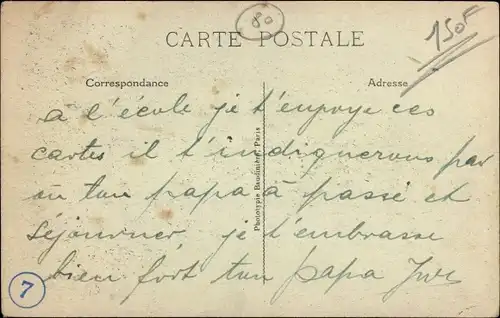 80
150F
CARTE POSTALE
Correspondance
Adresse
à l'école je t'envoye ces
cartes il t'indiquerons par
où ton papa à passé et
séjourner, je t'embrasse
bien fort ton papa
Phototypie Baudinière, Paris
7